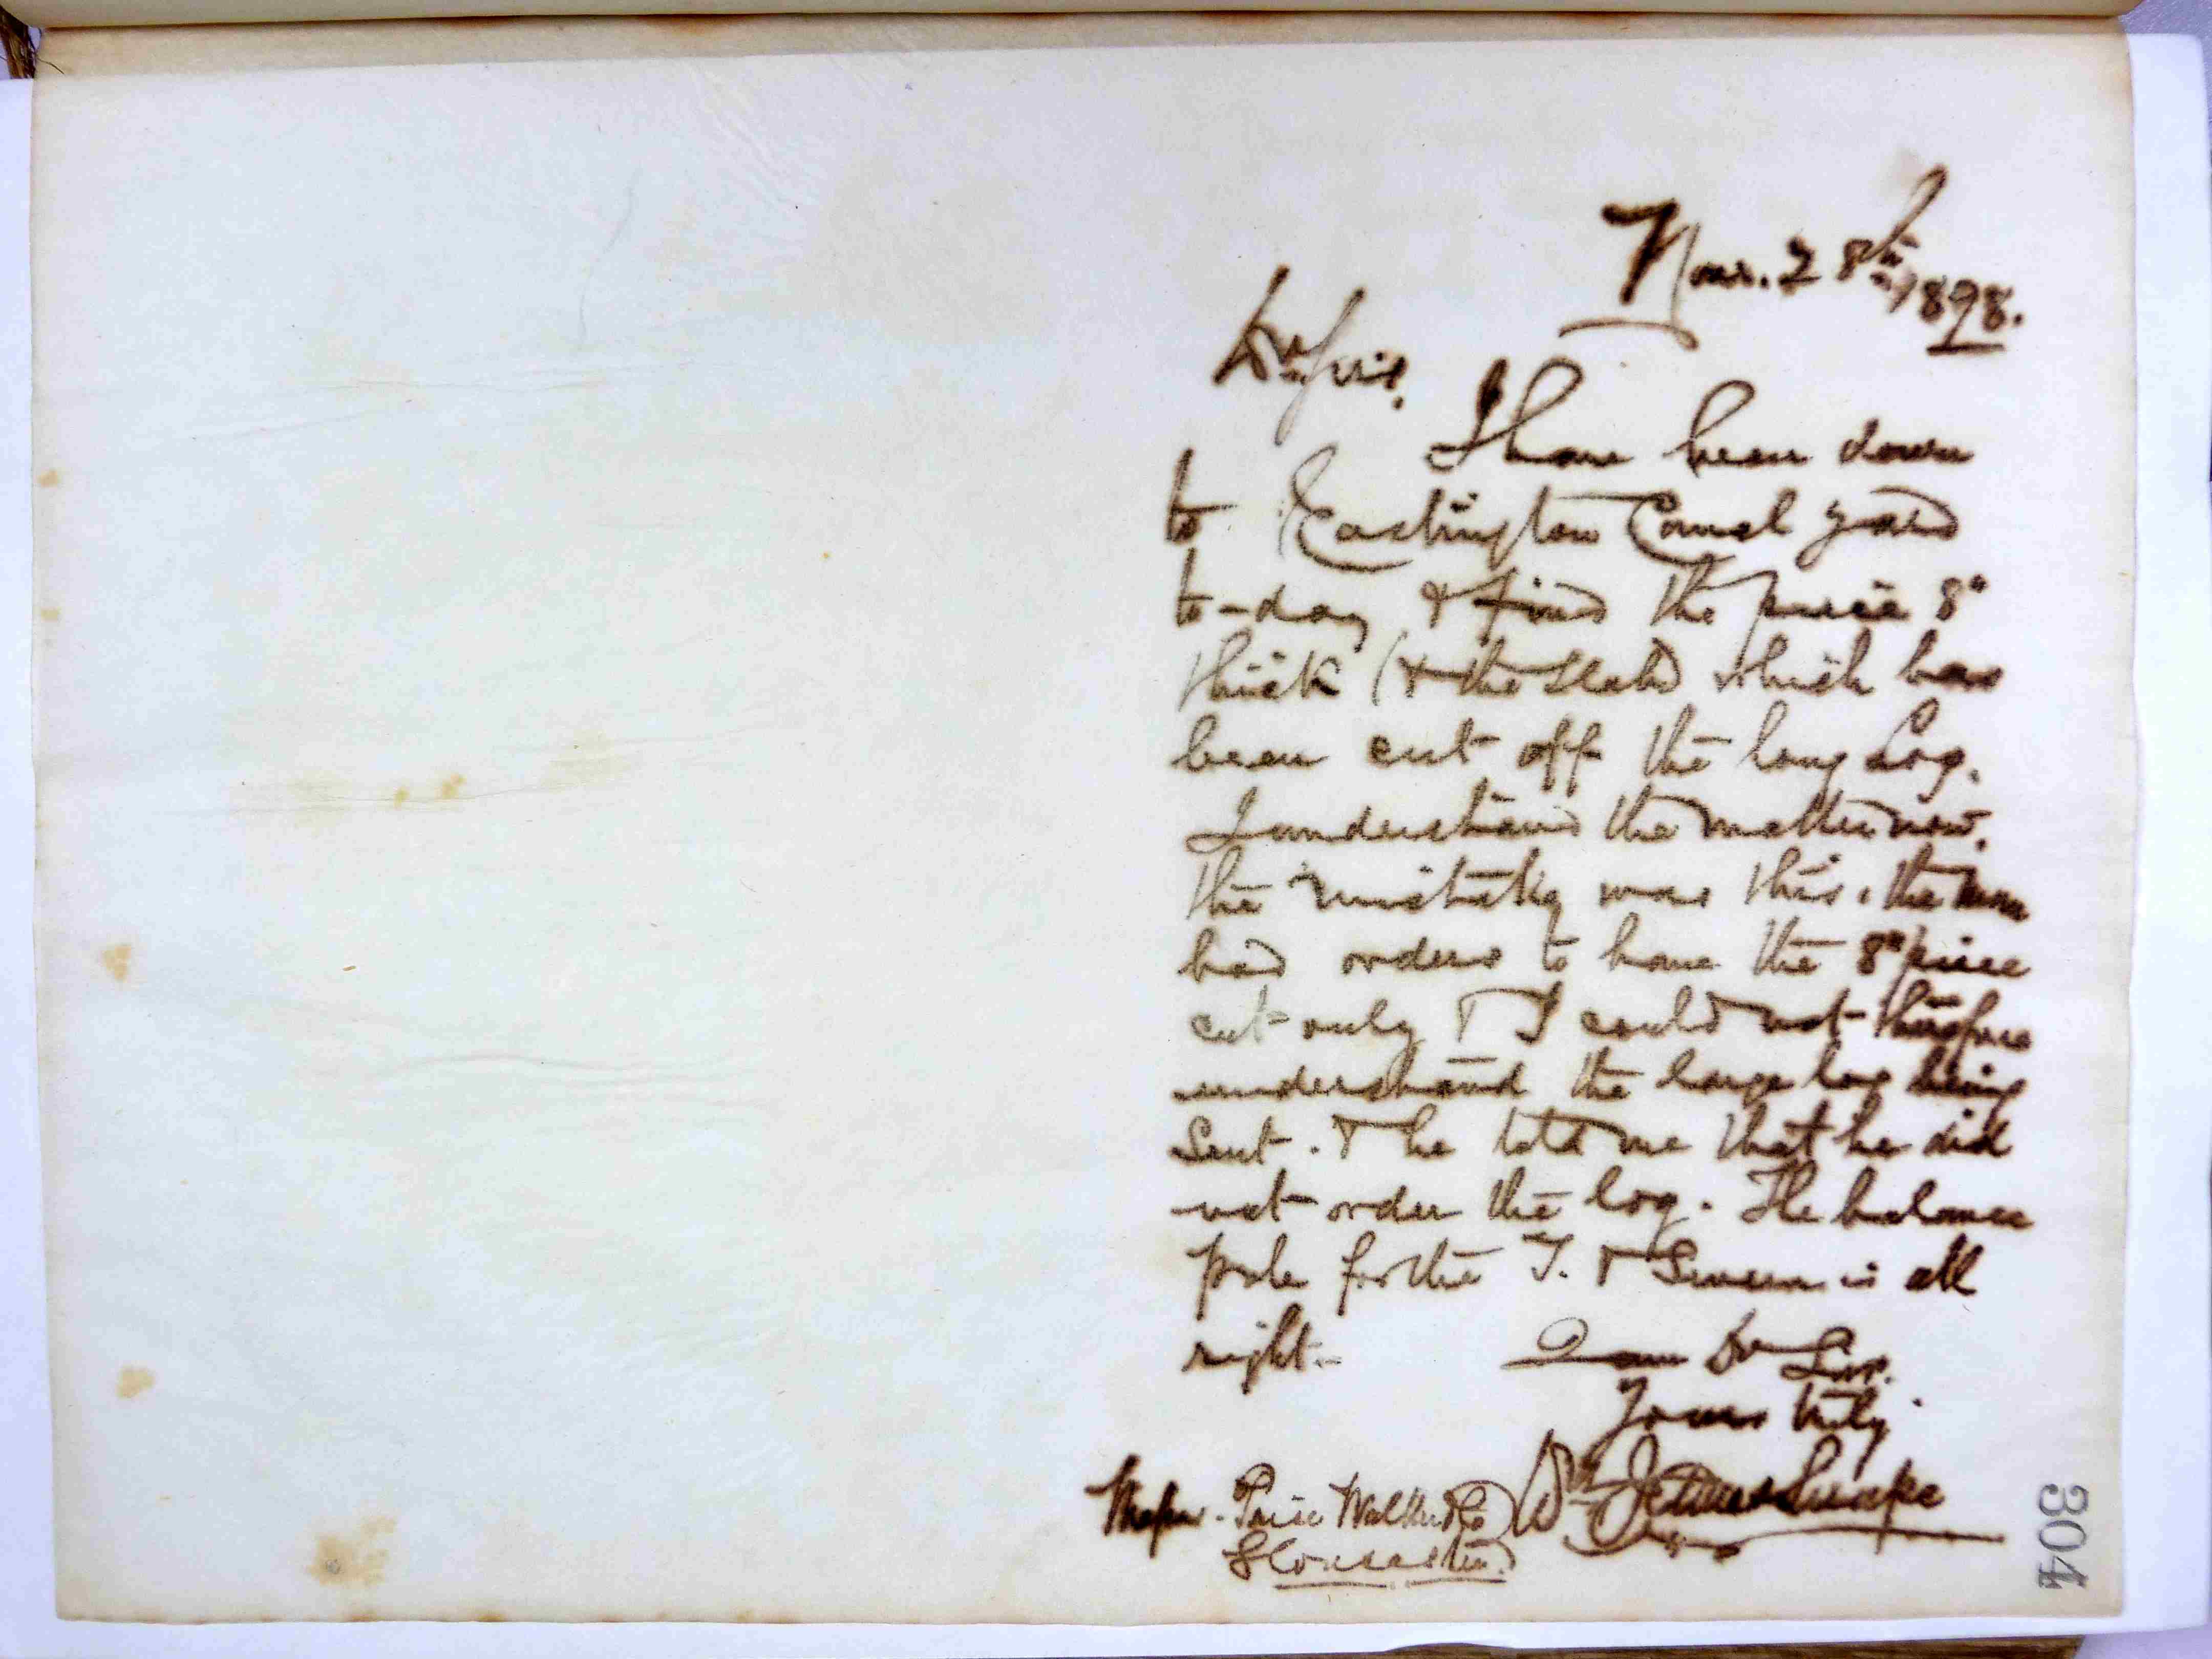 Nov. 28th 1898.
Dr Sir,
I have been down
to Eastington Canal yard
to-day & find the piece 8"
thick (& the slab) which has
been cut off the long Log.
I understand the matter now.
The mistake was this, the man
had orders to have the 8" piece
cut only & I could not therefore
understand the large log being
sent. & he told me that he did
not order the log. The balance
pole for the T. & Severn is all
right.-
I am Dr Sir.
Yours truly
Wm
Messrs. Price Walker & Co
Gloucester
304